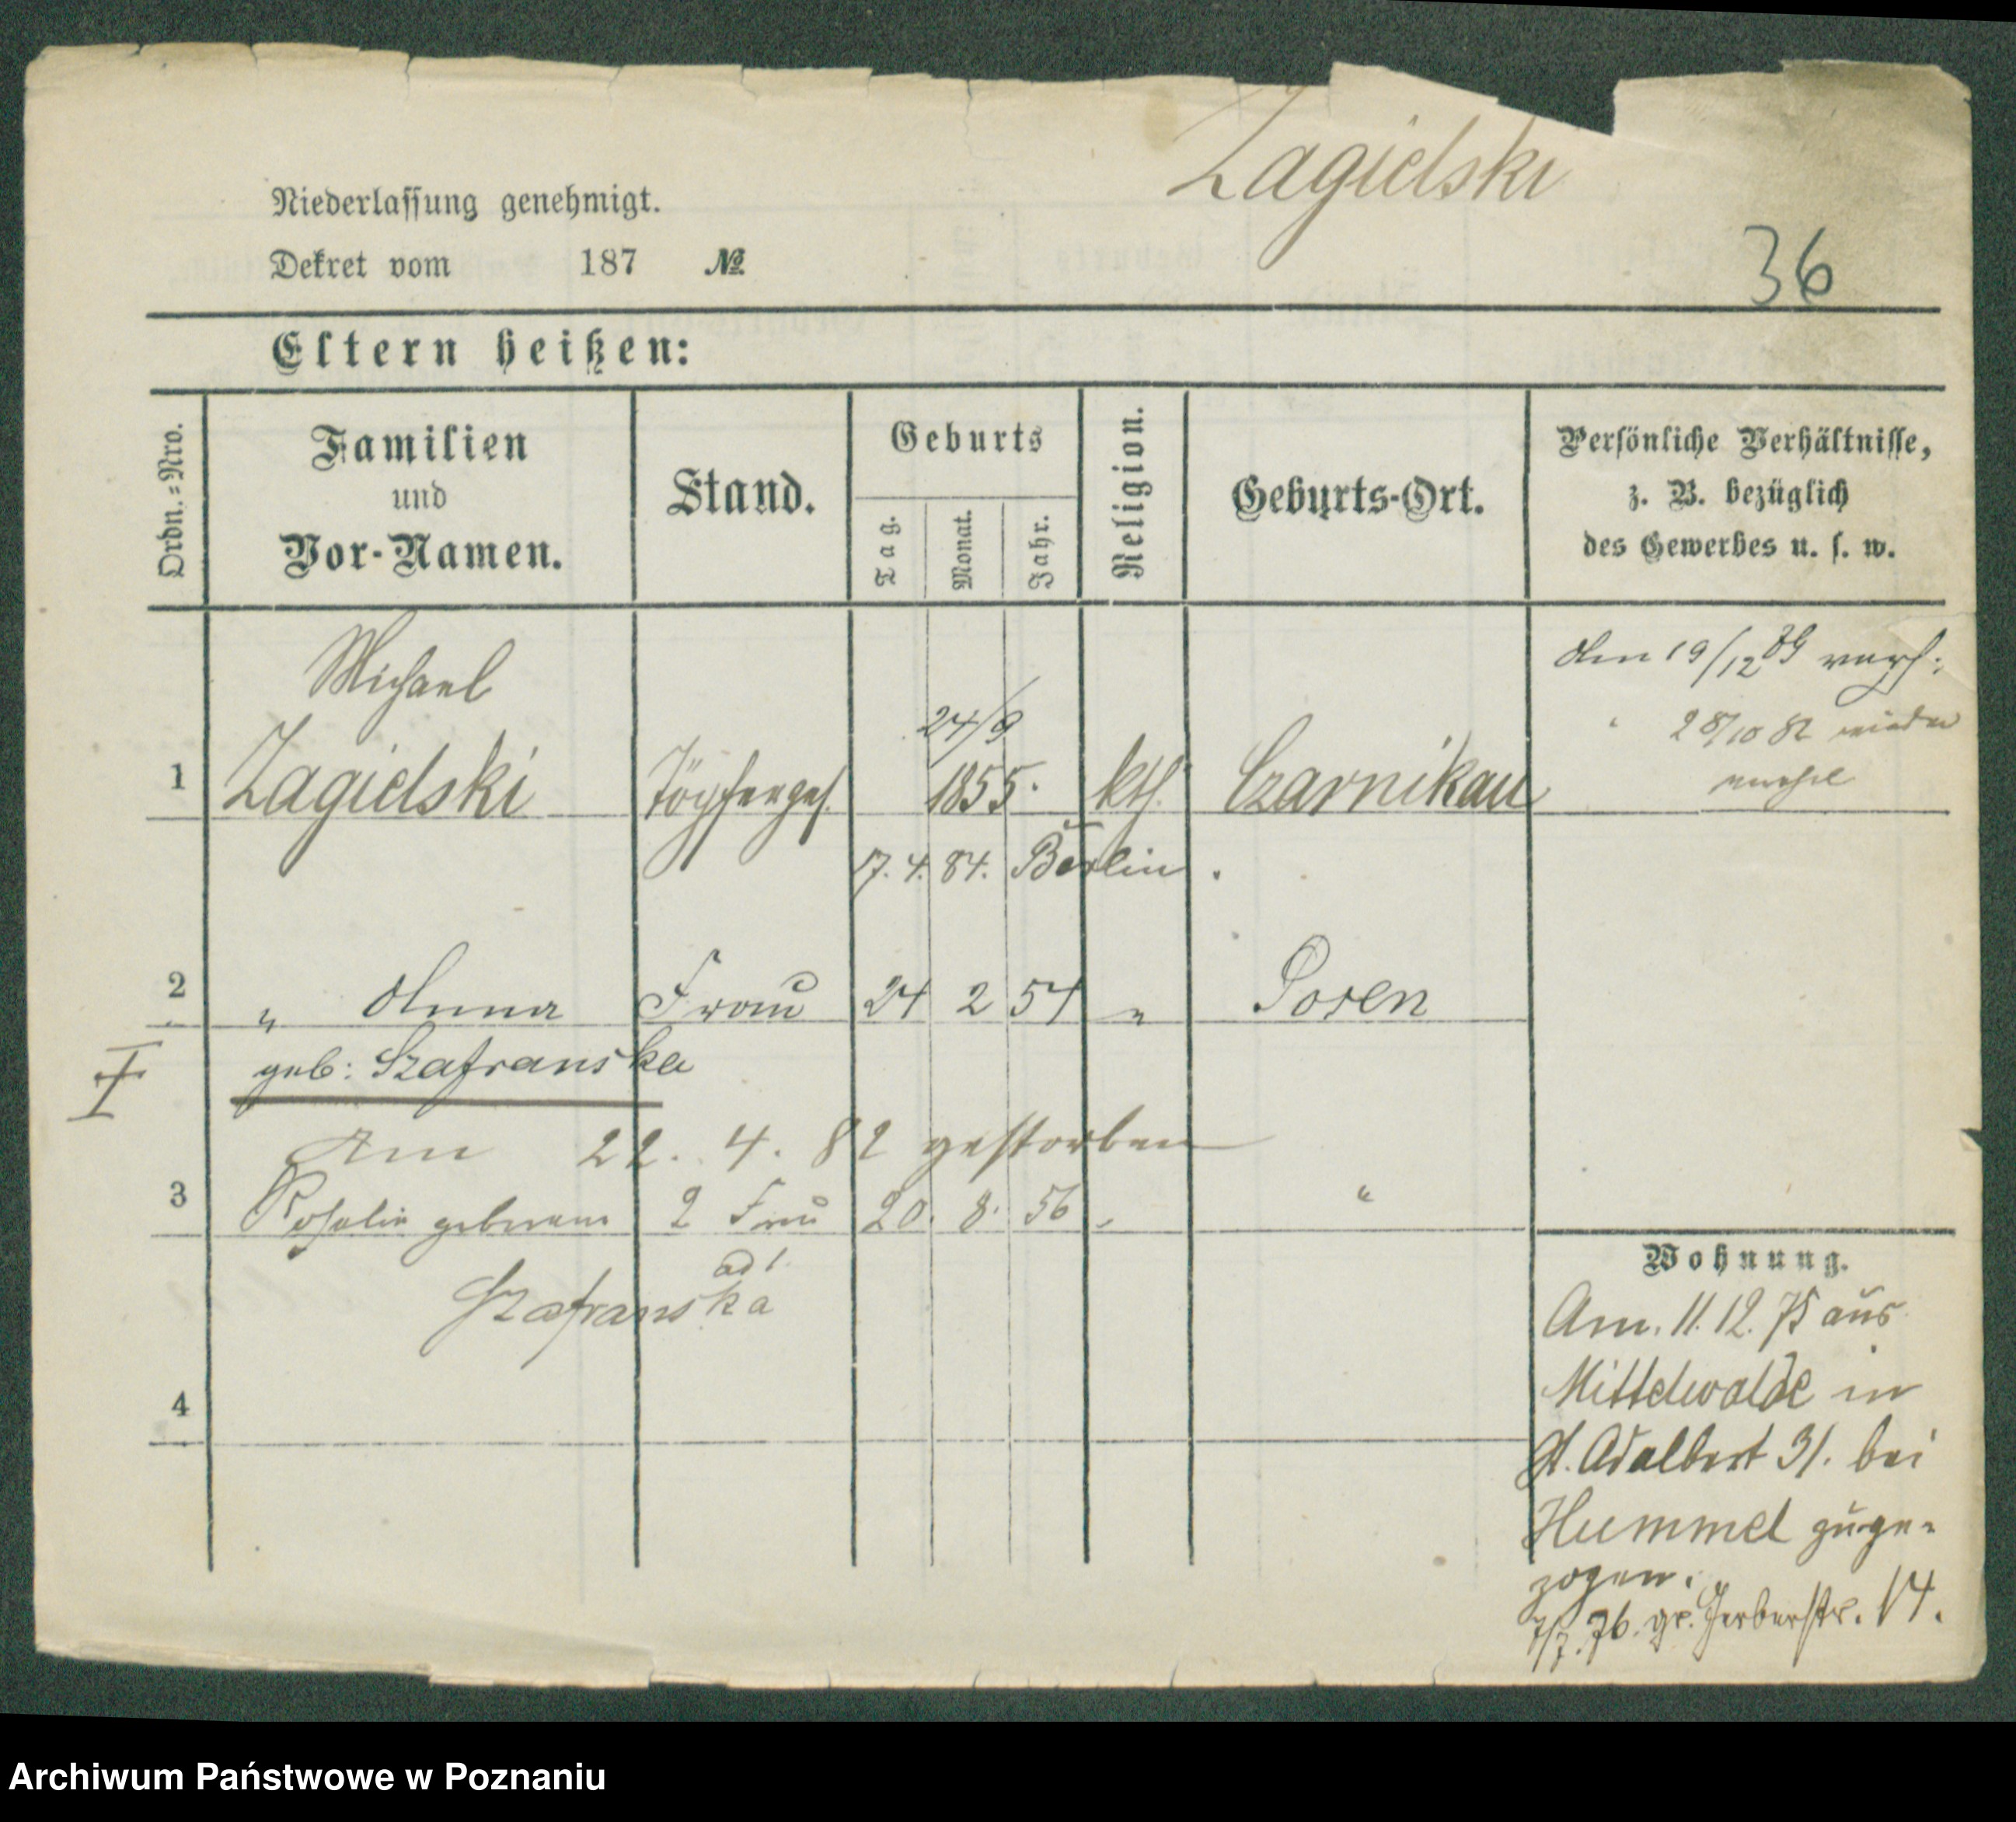 Zagielski
Niederlassung genehmigt.
Dekret vom 187 №
36
Eltern heißen:
Ordn.=Nro.
Familien
und
Vor-Namen.
Stand.
Geburts
Tag.
Monat.
Jahr.
Religion.
Geburts-Ort.
Persönliche Verhältnisse,
z. B. bezüglich
des Gewerbes u. s. w.
Michael
1 Zagielski Töpferges. 24/9 1855. kth. Czarnikau
den 19/12
28/10 82 wieder
17. 4. 84. Berlin.
2 " Anna Frau 24 2 54 " Posen
geb: Szafranska
I
Am 22. 4. 82 gestorben
3 Rosalie geborene 2 Frau 20. 8. 56 " "
ad 1.
Szafranska
4
Wohnung.
Am. 11. 12. 75 aus
Mittelwalde in
St. Adalbert 31. bei
Hummel zuge-
zogen.
7/7. 76. gr. Gerberstr. 14.
Archiwum Państwowe w Poznaniu